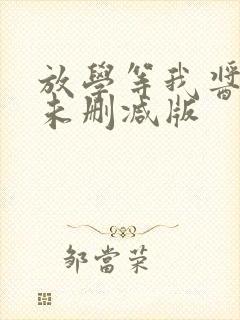 放學等我醬
未刪減版
鄒當荣